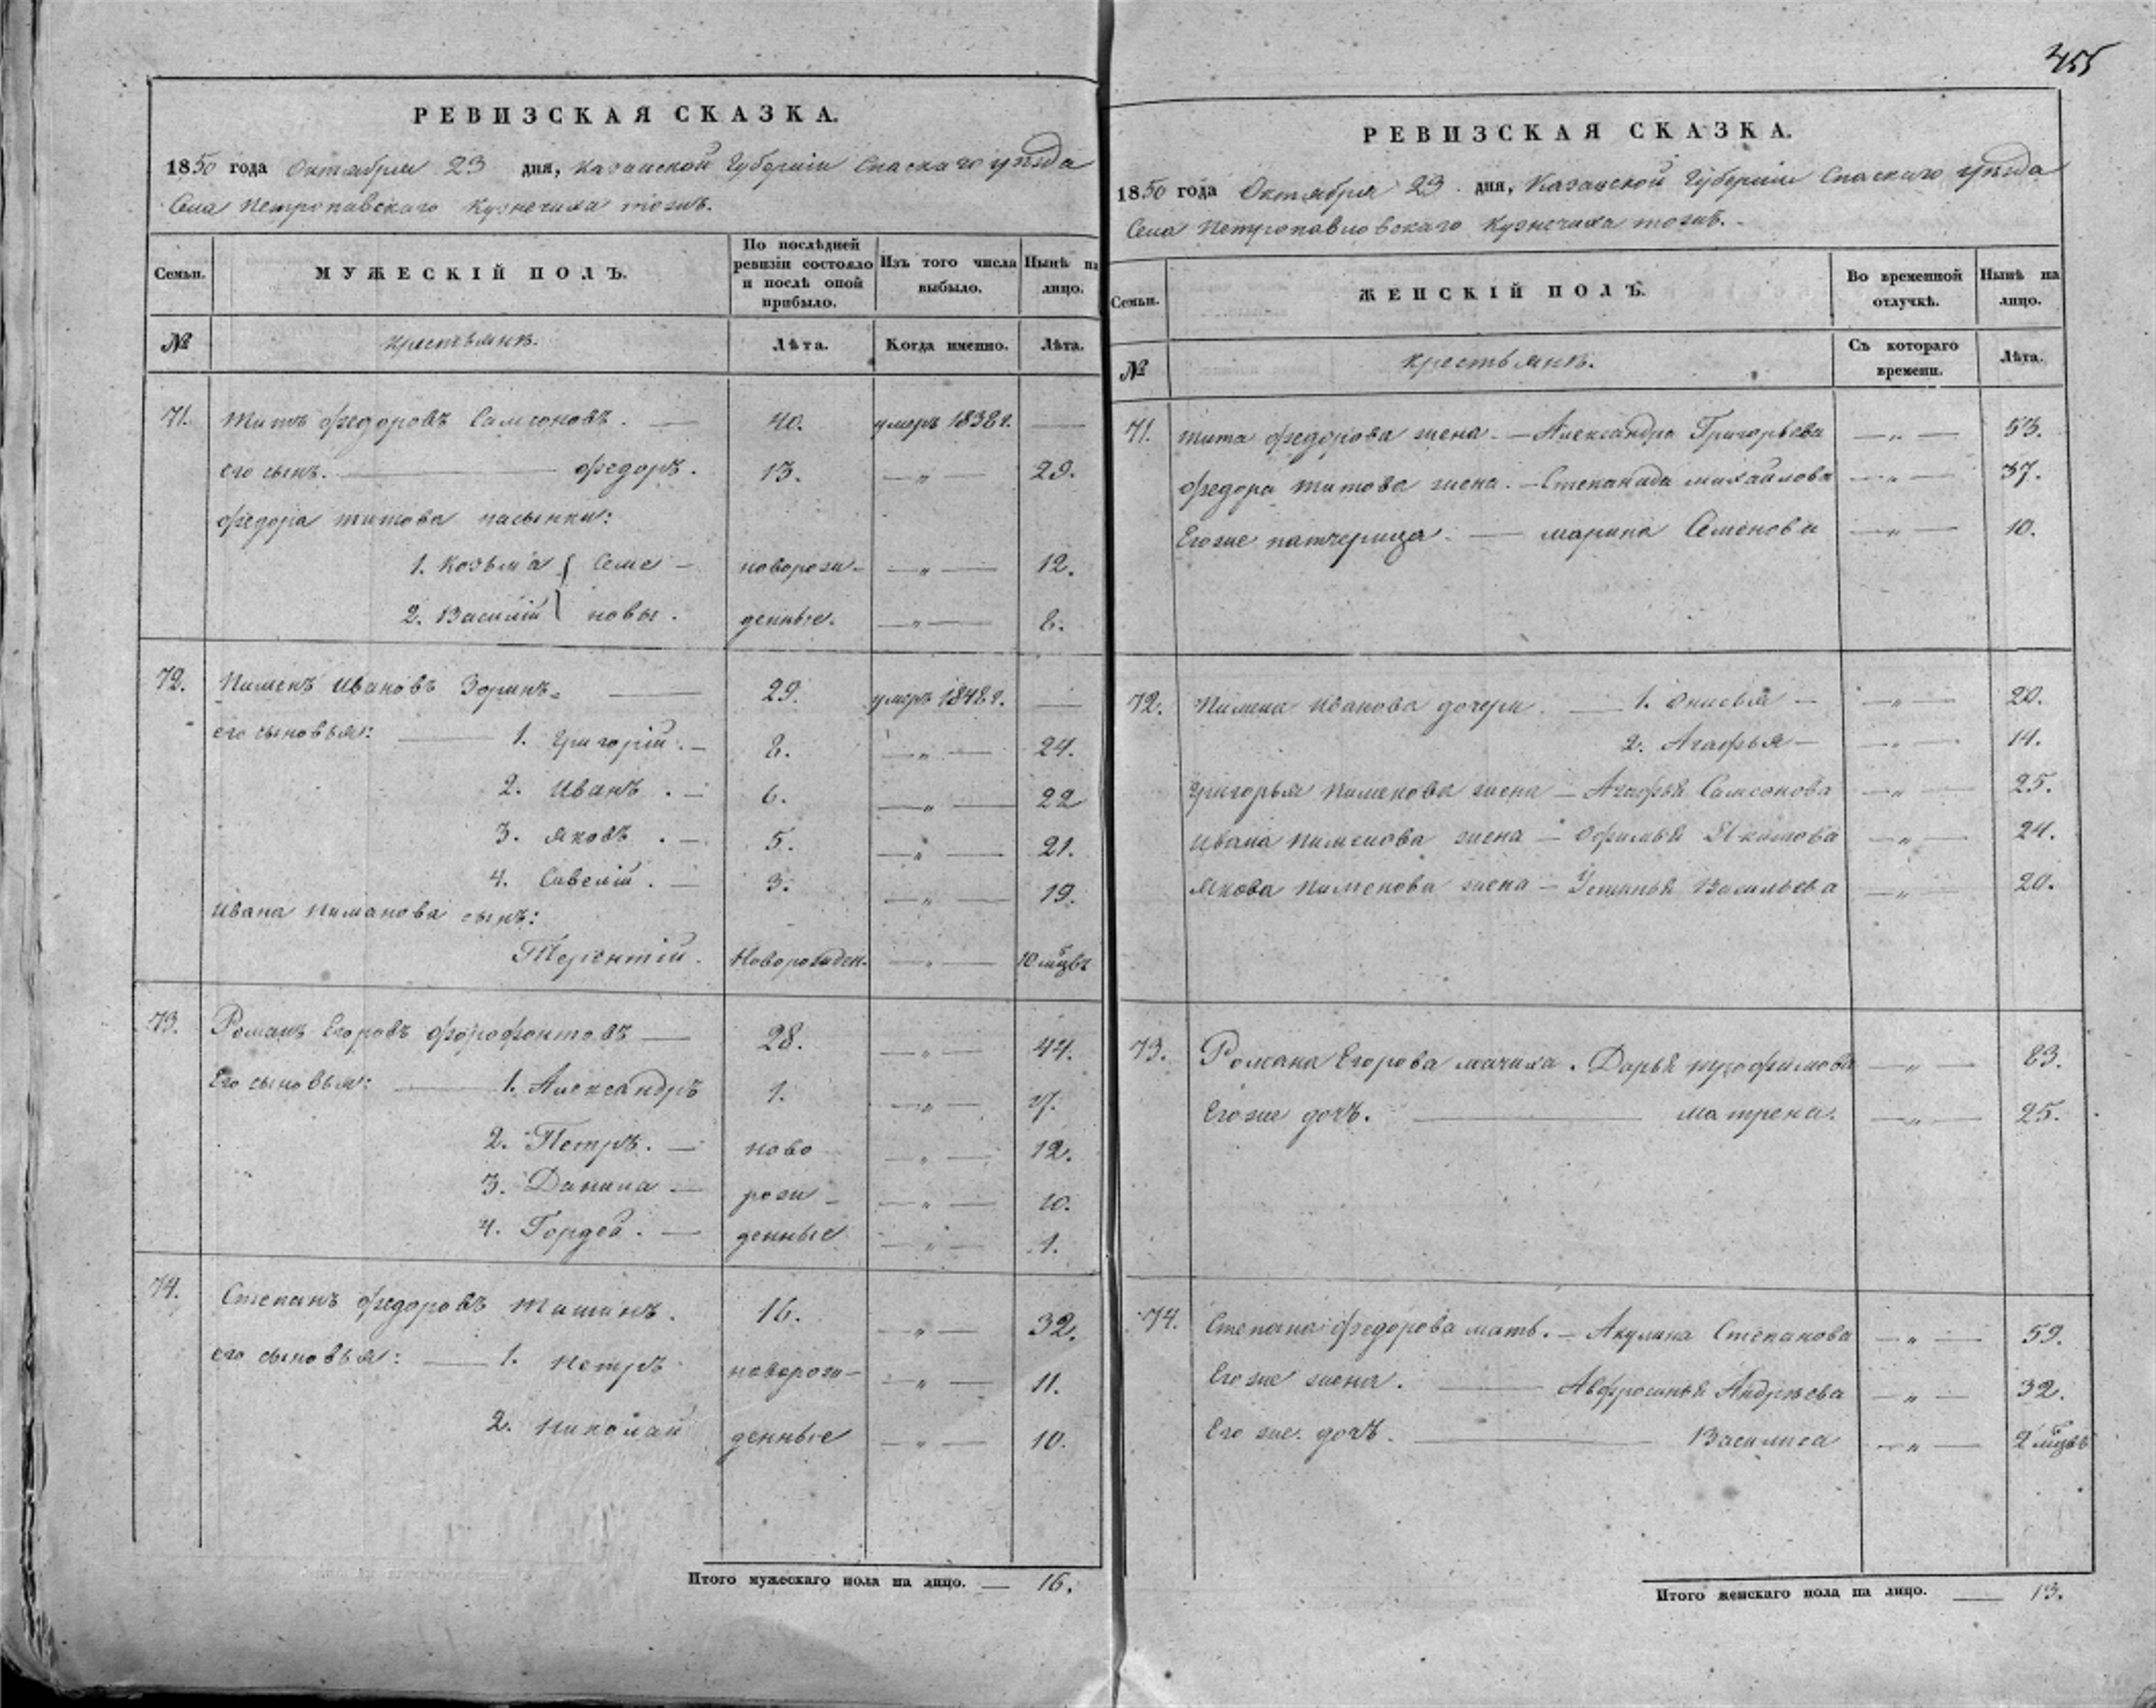 455
РЕВИЗСКАЯ СКАЗКА.
1850 года Октября 23 дня, Казанской Губерніи Спаскаго уѣзда
Села Петропавскаго Кузнечиха тожъ.
Семьи.
МУЖЕСКІЙ ПОЛЪ.
По послѣдней ревизіи состояло и послѣ оной прибыло.
Изъ того числа выбыло.
Нынѣ на лицо.
№
крестьянъ.
Лѣта.
Когда именно.
Лѣта.
71. Титъ Федоровъ Самсоновъ. — 40. умеръ 1838 г. —
его сынъ. — Федоръ. 13. — „ — 29.
Федора Титова пасынки:
1. Козьма } Семе- новорож- — „ — 12.
2. Василій } новы. денные. — „ — 8.
72. Пименъ Ивановъ Зоринъ. — 29. умеръ 1848 г. —
его сыновья: — 1. Григорій. — 8. — „ — 24.
2. Иванъ. — 6. — „ — 22
3. Яковъ. — 5. — „ — 21.
4. Савелій. — 3. — „ — 19.
Ивана Пиманова сынъ:
Терентій. Новорожден. — „ — 10 мцвъ
73. Романъ Егоровъ — 28. — „ — 44.
Его сыновья: — 1. Александръ 1. — „ — 17.
2. Петръ. — ново — „ — 12.
3. Данила — рож- — „ — 10.
4. Гордей. — денные — „ — 1.
74. Степанъ Федоровъ 16. — „ — 32.
его сыновья: — 1. Петръ новорож- — „ — 11.
2. Николай денные — „ — 10.
Итого мужескаго пола на лицо. — 16.
РЕВИЗСКАЯ СКАЗКА.
1850 года Октября 23 дня, Казанской Губерніи Спаскаго уѣзда
Села Петропавловскаго Кузнечиха тожъ.
Семьи.
ЖЕНСКІЙ ПОЛЪ.
Во временной отлучкѣ.
Нынѣ на лицо.
№
крестьянъ.
Съ котораго времени.
Лѣта.
71. Тита Федорова жена. — Александра Григорьева — „ — 53.
Федора Титова жена. — Степанида Михайлова — „ — 37.
Егоже патчерица. — Марина Семенова — „ — 10.
72. Пимена Иванова дочери. — 1. Анисья — — „ — 20.
2. Агафья — — „ — 14.
Григорья Пименова жена — Агафья Самсонова — „ — 25.
Ивана Пименова жена — Офимья Якимова — „ — 24.
Якова Пименова жена — Устинья Васильева — „ — 20.
73. Романа Егорова мачиха. Дарья — „ — 83.
Егоже дочь. — Матрена. — „ — 25.
74. Степана Федорова мать. — Акулина Степанова — „ — 59.
Егоже жена. — Авфросинья Андрѣева — „ — 32.
Егоже дочь. — Василиса — „ — 2 мцвъ
Итого женскаго пола на лицо. — 13.